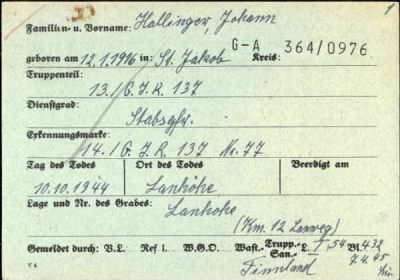 1
Familien- u. Vorname: Hallinger, Johann
geboren am 12.1.1916 in: St. Jakob Kreis: G-A 364/0976
Truppenteil:
13./G.J.R. 137
Dienstgrad:
Stabsgfr.
Erkennungsmarke:
14./G.J.R 137 Nr. 77
Tag des Todes Ort des Todes Beerdigt am
10.10.1944 Lanhöhe
Lage und Nr. des Grabes:
Lanhöhe
(Km. 12 Lanweg)
Gemeldet durch: V.L. Ref I. W.G.O. Wast.- Trupp.- San.- L. 54 Bl. 432
Finnland 7.4.45